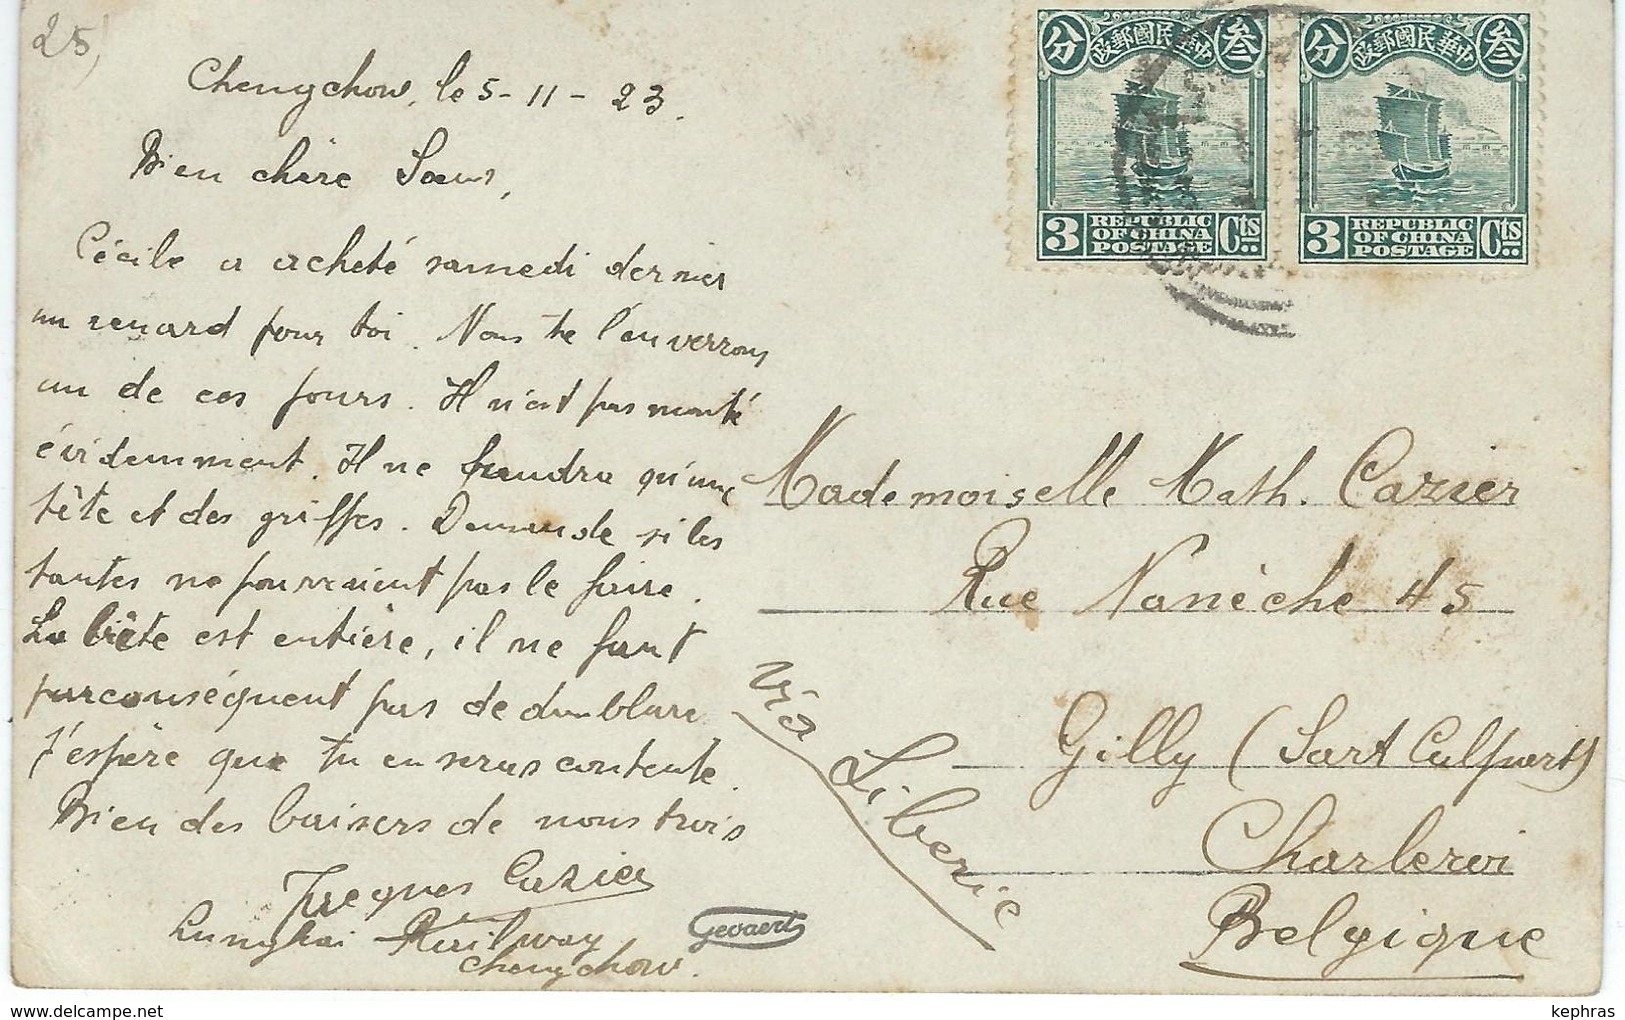 25,
Chengchow, le 5-11-23.
Bien chère Sœur,
Cécile a acheté samedi dernier
un renard pour toi. Nous te l'enverrons
un de ces jours. Il n'est pas monté
évidemment. Il ne faudra qu'une
tête et des griffes. Demande si les
tantes ne pourraient pas le faire.
La bête est entière, il ne faut
par conséquent pas de doublure
J'espère que tu en seras contente.
Bien des baisers de nous trois
Jacques Cazier
Lunghai Railway
Chengchow.
Gevaert
中華民國郵政
叁分
3 REPUBLIC OF CHINA POSTAGE Cts
中華民國郵政
叁分
3 REPUBLIC OF CHINA POSTAGE Cts
Mademoiselle Math. Cazier
Rue Nanèche 45
Gilly (Sart Culpart)
Charleroi
Belgique
via Liberie
kephras